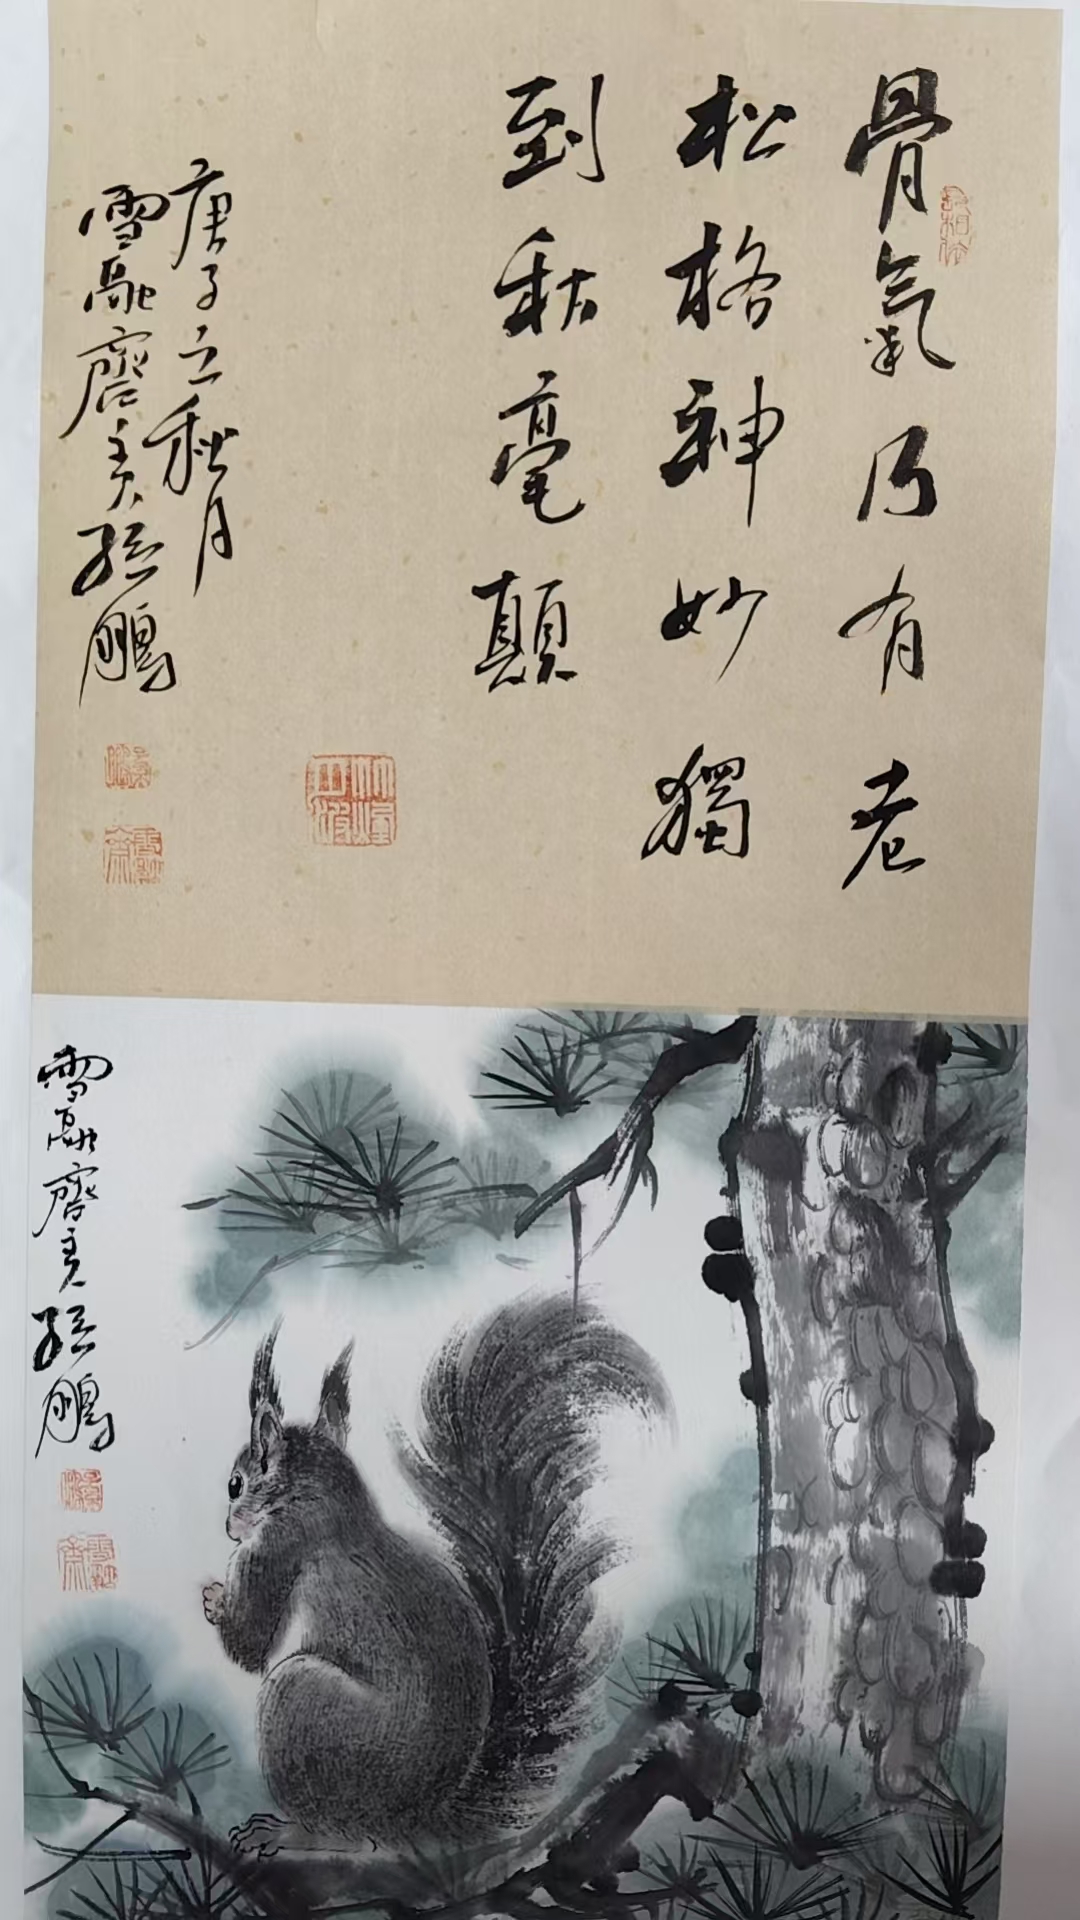 骨氣乃有老
松格神妙獨
到秋毫顛
庚子之秋月
雪融齋主孫鵬
雪融齋主孫鵬